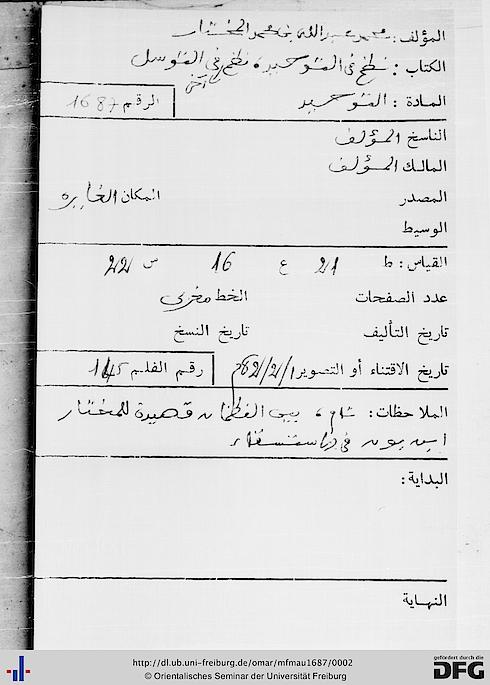 المؤلف: محمد عبد الله بن محمد المختار
الكتاب: نظم في التوحيد، نظم في التوسل
آخر
المادة: التوحيد
الرقم 1687
الناسخ المؤلف
المالك المؤلف
المصدر
المكان
الوسيط
القياس: ط 21 ع 16 س 22
عدد الصفحات
الخط مغربي
تاريخ التأليف
تاريخ النسخ
تاريخ الاقتناء أو التصوير
رقم الفلم 145
الملاحظات: تام، بين النظمان قصيدة للمختار
ابن بون في الاستسقاء
البداية:
النهاية
http://dl.ub.uni-freiburg.de/omar/mfmau1687/0002
© Orientalisches Seminar der Universität Freiburg
gefördert durch die
DFG